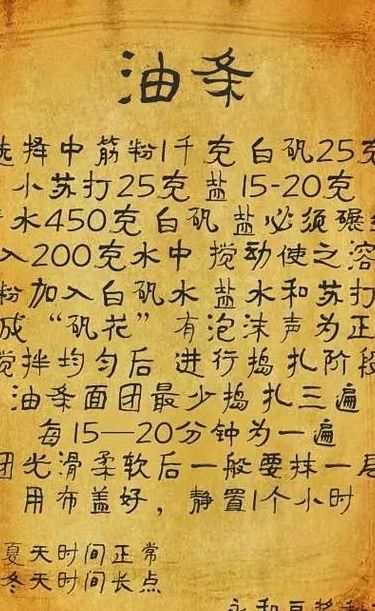 油条
选择中筋粉1千克 白矾25克
小苏打25克 盐 15-20克
水450克 白矾 盐必须碾
入200克水中 搅动使之溶
粉加入白矾水 盐水和苏打
成“矾花” 有泡沫声为正
搅拌均匀后 进行捣扎阶段
油条面团最少捣扎三遍
每15—20分钟为一遍
团光滑柔软后一般要抹一层
用布盖好，静置1个小时
夏天时间正常
冬天时间长点
永和豆浆